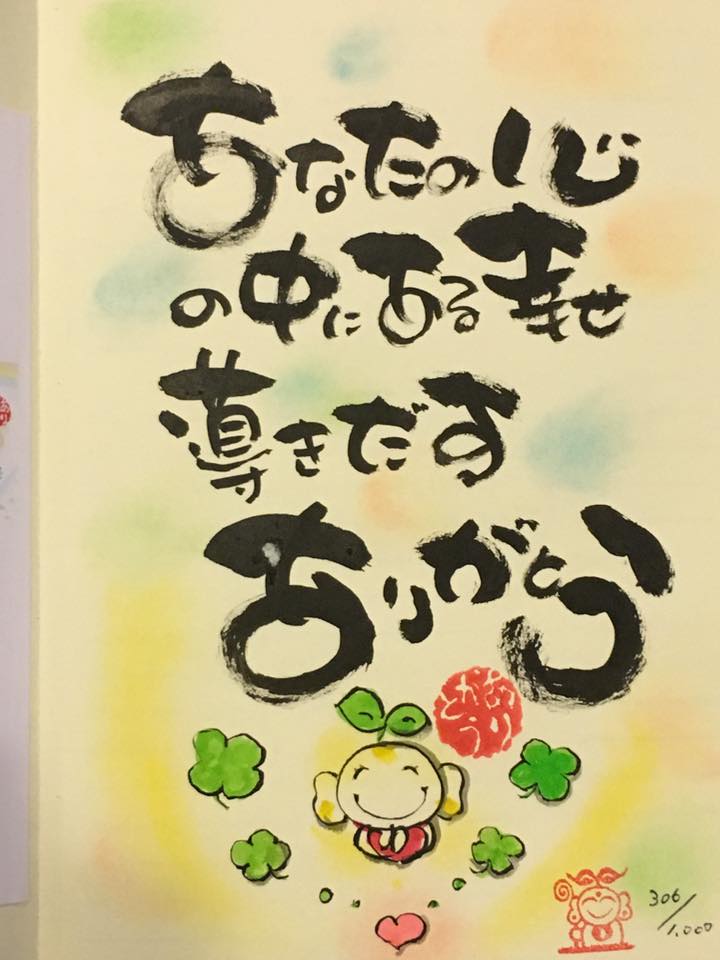 あなたの心
の中にある幸せ
導きだす
ありがとう
ありがとう
306/1,000